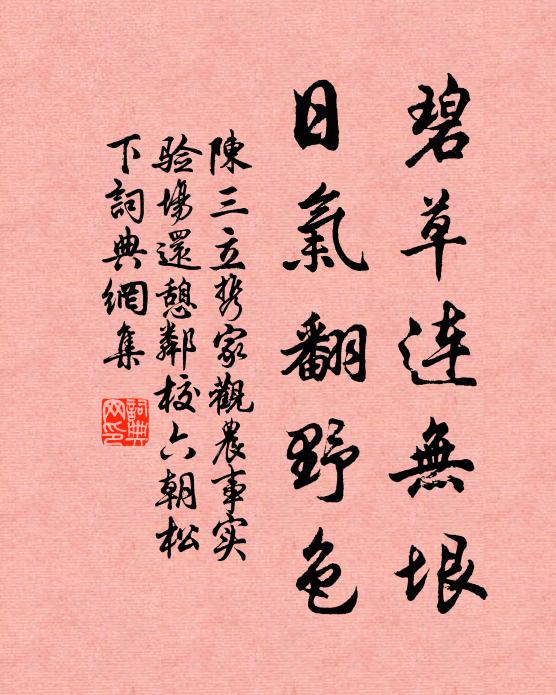 碧草连無垠
日氣翻野色
陳三立携家觀農事实
验場還憩鄰校六朝松
下詞典網集
詞典
网印